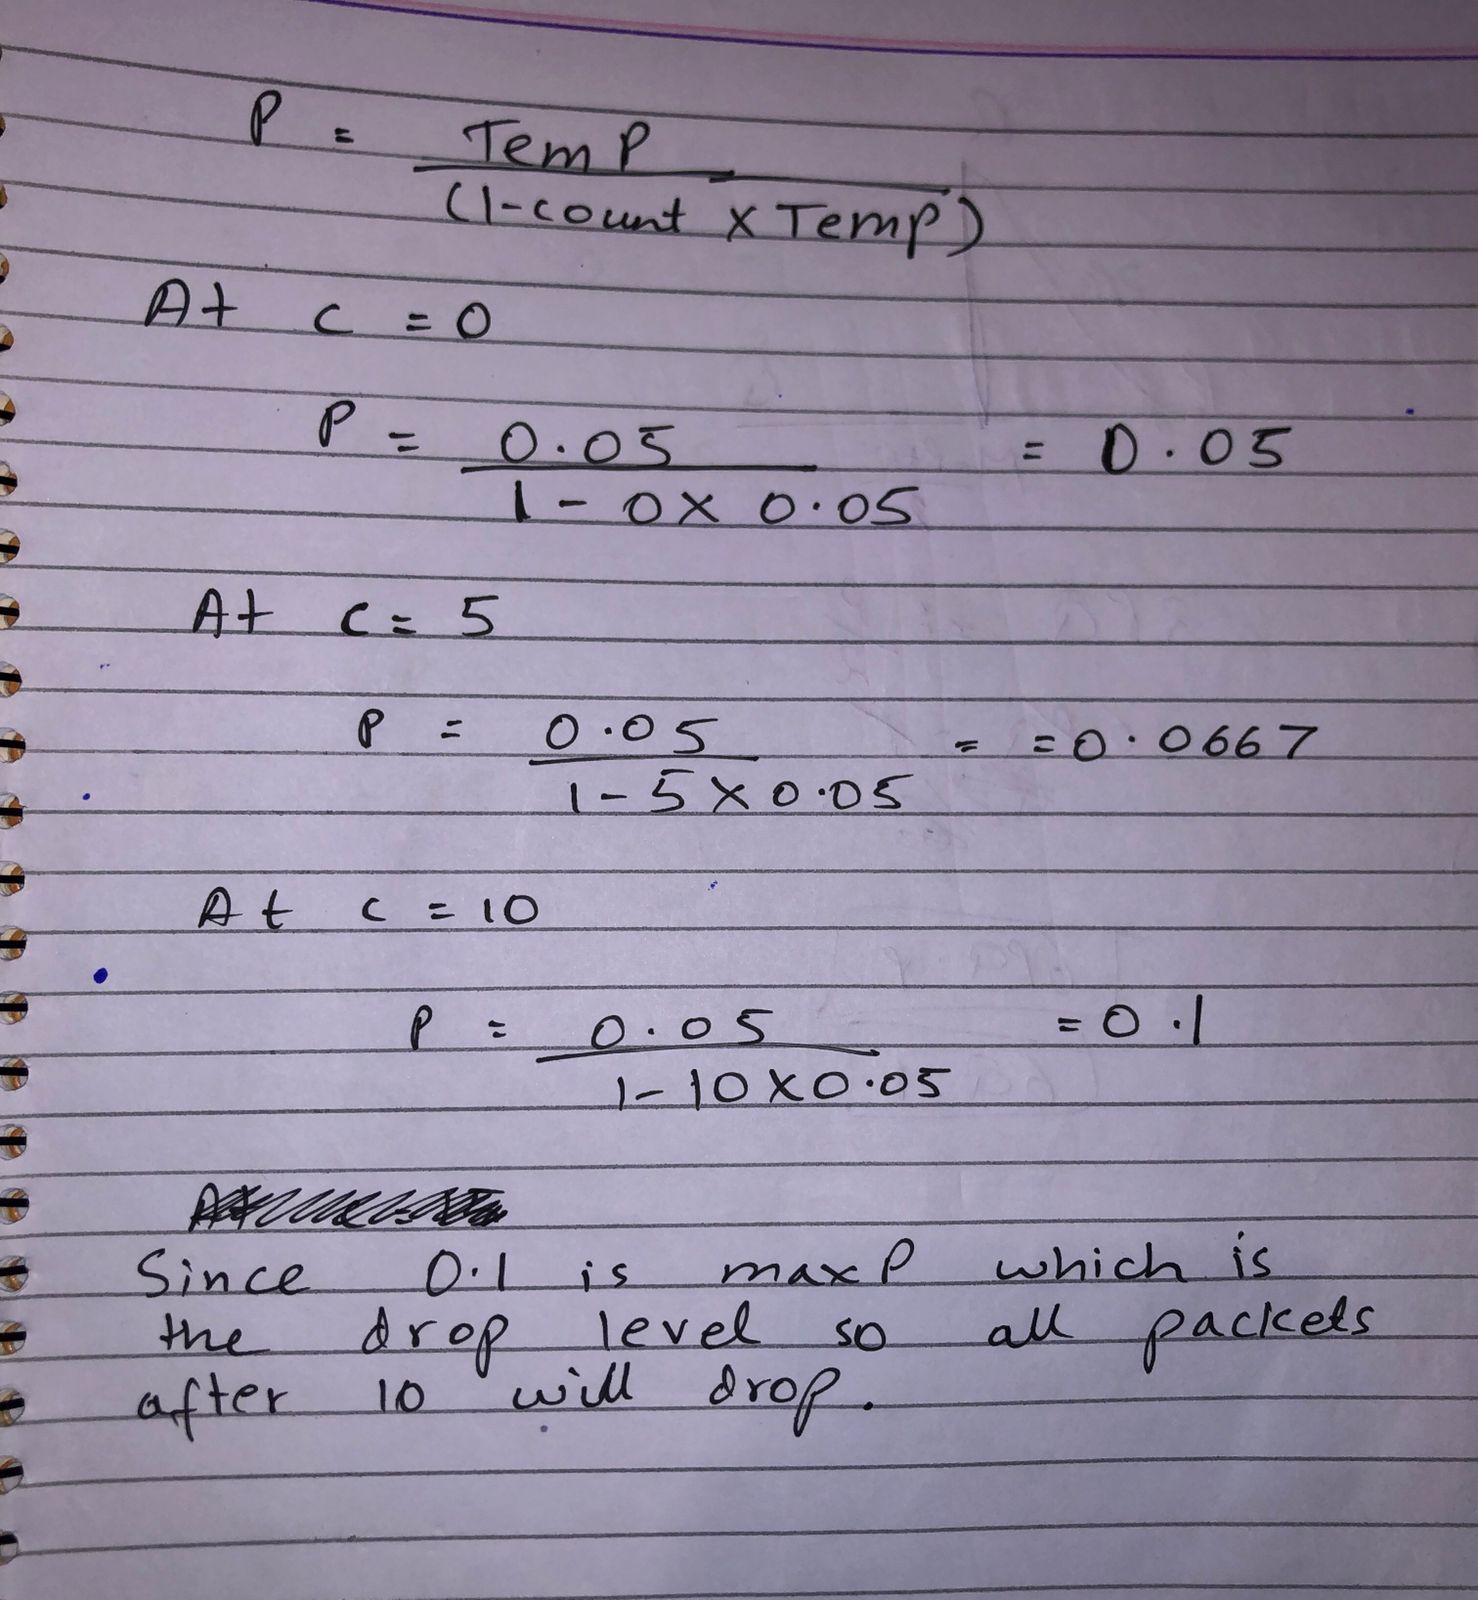 P = TempP
(1-count x Temp)
At c = 0
P = 0.05 = 0.05
1 - 0 x 0.05
At c = 5
P = 0.05 = = 0.0667
1 - 5 x 0.05
At c = 10
P = 0.05 = 0.1
1 - 10 x 0.05
Since 0.1 is maxP which is
the drop level so all packets
after 10 will drop.